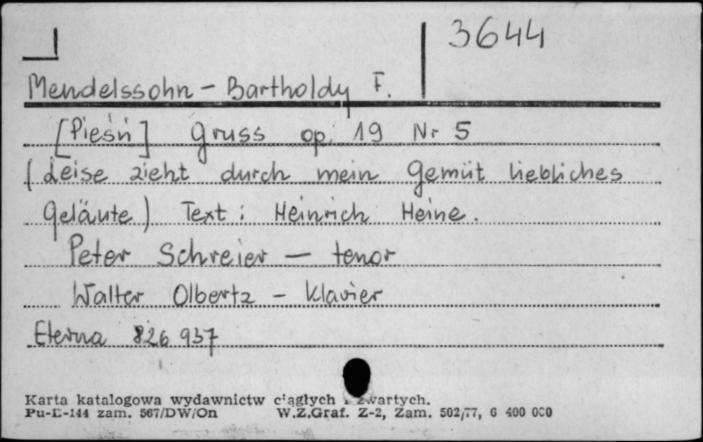 3644
Mendelssohn - Bartholdy F.
[Pieśń] Gruss op. 19 Nr 5
(Leise zieht durch mein Gemüt liebliches
Geläute) Text: Heinrich Heine.
Peter Schreier — tenor
Walter Olbertz - Klavier
Eterna 826 937
Karta katalogowa wydawnictw ciągłych i zwartych.
Pu-E-144 zam. 567/DW/On W.Z.Graf. Z-2, Zam. 502/77, 6 400 000